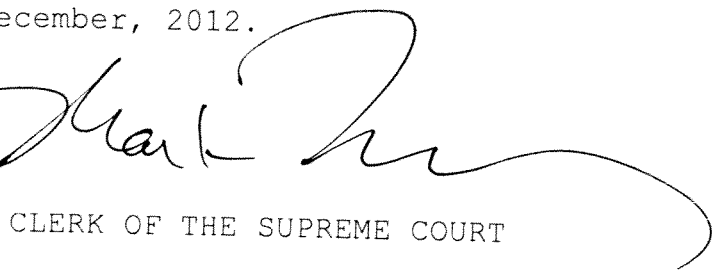 ecember, 2012.
Mark
CLERK OF THE SUPREME COURT